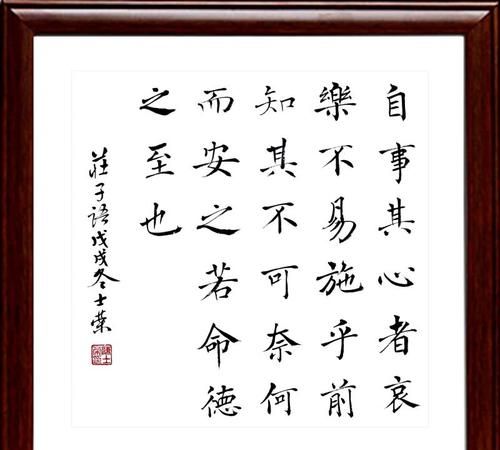 自事其心者哀
樂不易施乎前
知其不可奈何
而安之若命德
之至也
莊子語戊戌冬士榮